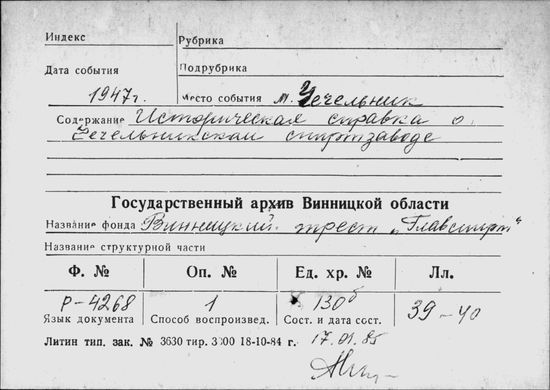 Индекс
Рубрика
Дата события
Подрубрика
1947г.
Место события м. Чечельник
Содержание Историческая справка о
Чечельникском спиртзаводе
Государственный архив Винницкой области
Название фонда Винницкий трест „Главспирт"
Название структурной части
Ф. № Оп. № Ед. хр. № Лл.
Р-4268 1 130б 39-40
Язык документа Способ воспроизвед. Сост. и дата сост.
Литин тип. зак. № 3630 тир. 3000 18-10-84 г. 17.01.85